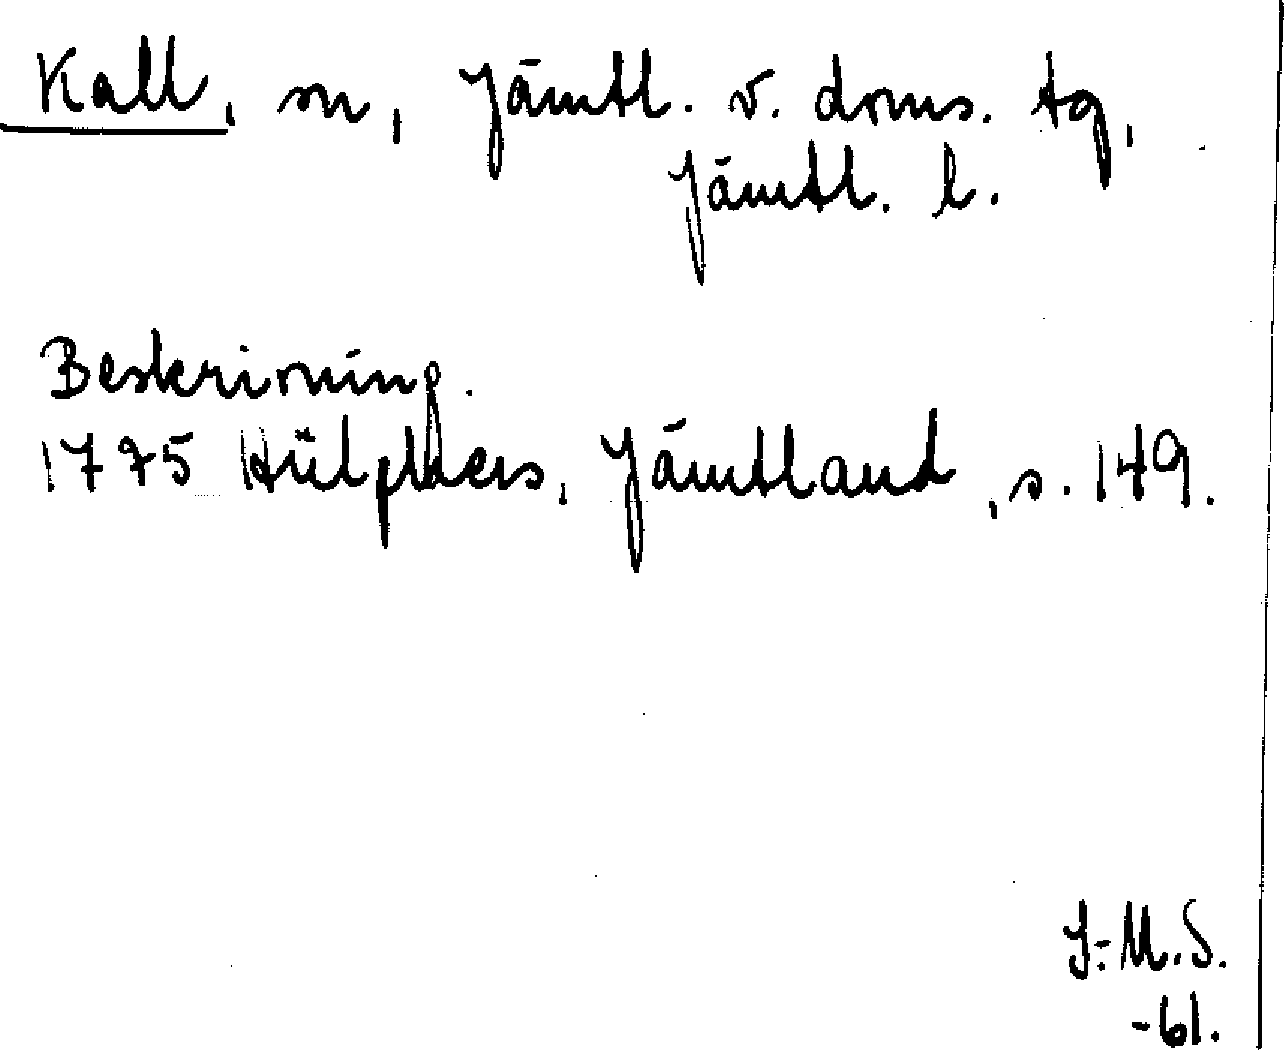 Kall, sn, Jämtl. v. doms. tg,
Jämtl. l.
Beskrivning.
1775 Hülphers, Jämtland, s. 149.
J:M.S.
-61.